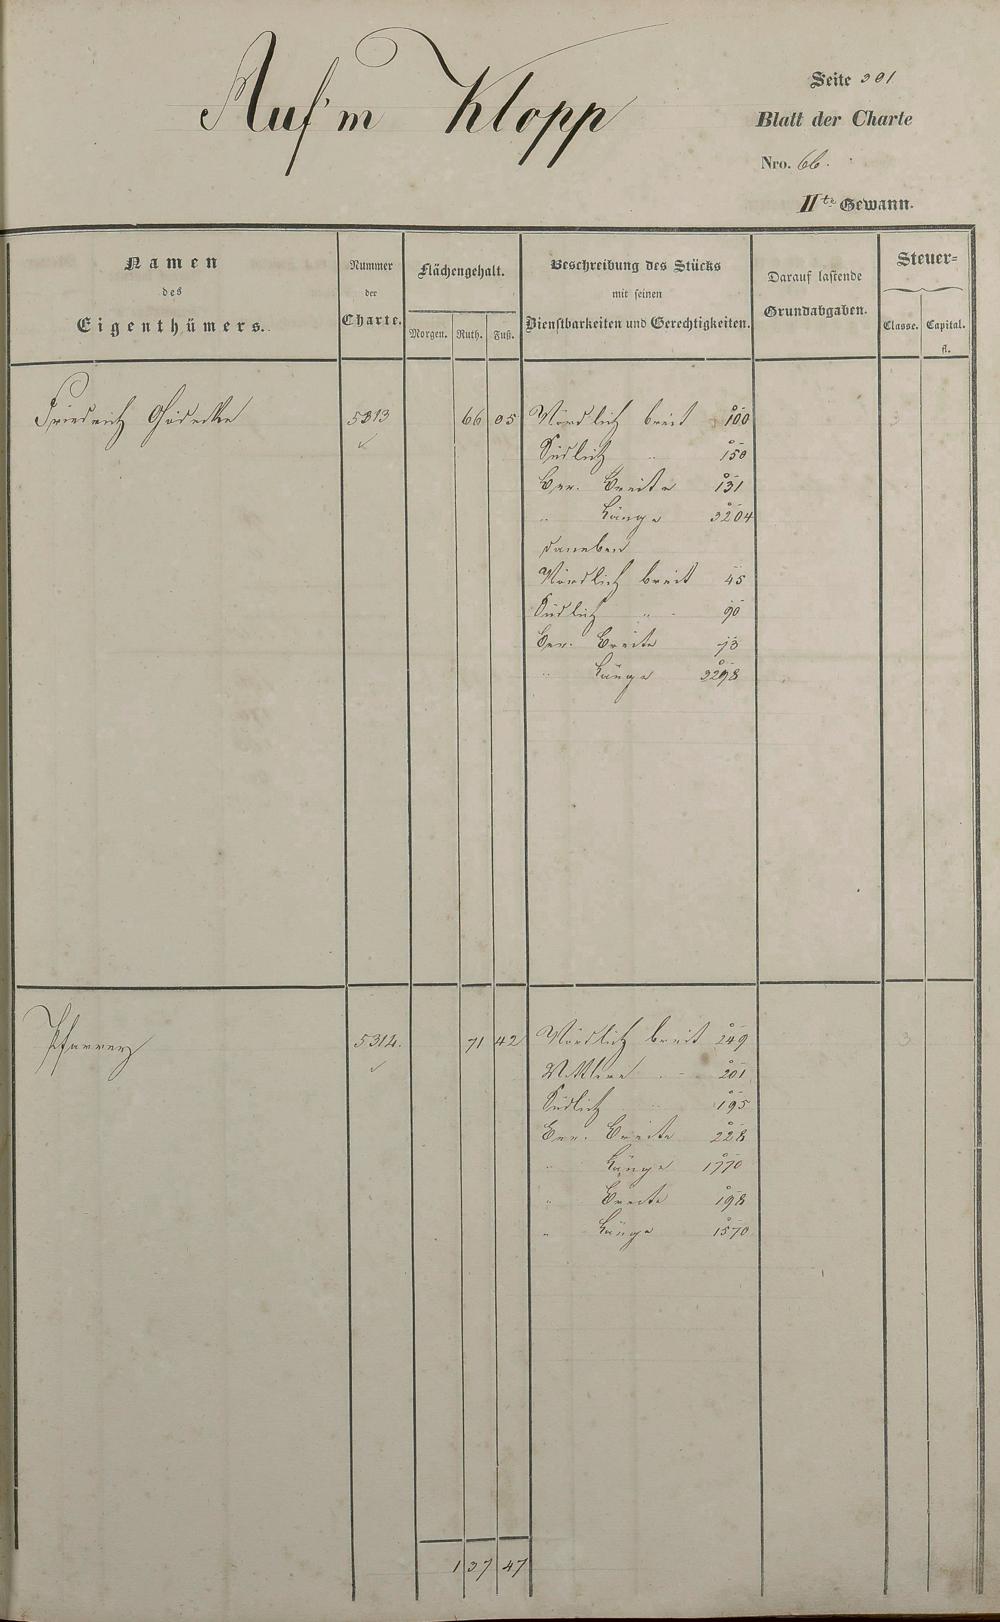 Auf'm Klopp
Seite 301
Blatt der Charte
Nro. 66.
IIte Gewann.
Namen
des
Eigenthümers.
Nummer
der
Charte.
Flächengehalt.
Morgen. Ruth. Fuß.
Beschreibung des Stücks
mit seinen
Dienstbarkeiten und Gerechtigkeiten.
Darauf lastende
Grundabgaben.
Steuer=
Classe. Capital.
fl.
Friedrich Gödecke 5313 66 05 Nördlich breit 100
Südlich " 150
Ber. Breite 131
" Länge 3204
daneben
Nördlich breit 45
Südlich " 90
Ber. Breite 73
" Länge 3298
Pfarrey 5314. 71 42 Nördlich breit 249
Mittlere - 201
Südlich " 195
Ber. Breite 228
" Länge 1770
" Breite 198
" Länge 1570
1 37 47